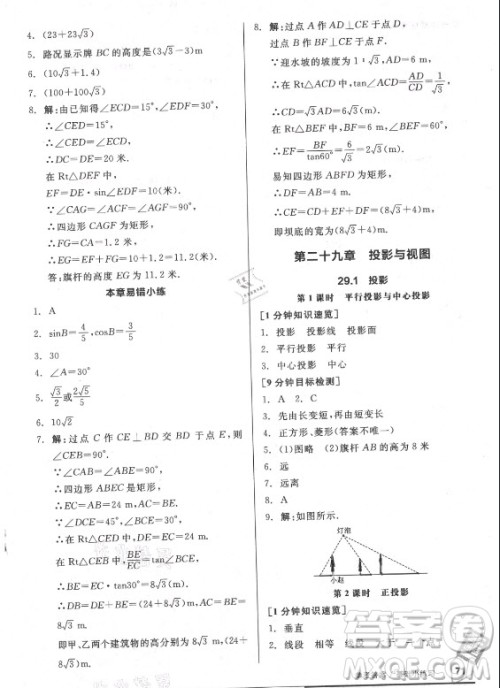 4. (23+23√3)
5. 路况显示牌 BC 的高度是(2√3-2)m
6. (10√3+1.4)
7. (100+100√3)
8. 解:由已知得∠ECD=15°,∠EDF=30°,
∴∠CED=15°,
∴∠ECD=∠CED,
∴DC=DE=20 米.
在 Rt△EDF 中,
EF=DE·sin∠EDF=10(米).
∵∠CAG=∠ACF=∠AGF=90°,
∴四边形 CAGF 为矩形,
∴FG=CA=1.2 米,
∴EG=EF+FG=10+1.2=11.2(米).
答:旗杆的高度 EG 为 11.2 米.
本章易错小练
1. A
2. sinB=4/5,cosB=3/5
3. 30
4. ∠A=30°
5. √3/2或2√5/5
6. 10√2
7. 解:过点 C 作 CE⊥BD 交 BD 于点 E,则
∠CEB=90°.
∵∠CAB=∠ABE=90°,
∴四边形 ABEC 是矩形,
∴EC=AB=24 m,AC=BE.
在 Rt△CEB 中,BE/EC=tan∠ECB,
∴BE=EC·tan30°=8√3(m),
∴DB=DE+BE=(24+8√3)m,
AC=BE=8√3 m.
即甲、乙两个建筑物的高分别为 8√3 m,
(24+8√3)m.
8. 解:过点 A 作 AD⊥CE 于点 D,过点
B 作 BF⊥CE 于点 F.
∵迎水坡的坡度为 1:√3,AD=6 m,
∴在 Rt△ACD 中,tan∠ACD=AD/CD=
6/CD=1/√3,
∴CD=6√3 m.
在 Rt△BEF 中,BF=6 m,∠BEF=60°,
∴EF=BF/tan60°=6/√3=2√3(m).
易知四边形 ABFD 为矩形,
∴FD=AB=5 m,
∴CE=CD+DF+EF=6√3+5+2√3=
(8√3+5)m,
即坝底的宽为(8√3+5)m.
第二十九章 投影与视图
29.1 投影
第 1 课时 平行投影与中心投影
[1 分钟知识速览]
1. 投影 投影线 投影面
2. 平行投影 平行
3. 中心投影 中心投影
[9 分钟目标检测]
1. A 2. C
3. 先由长变短,再由短变长
4. 正方形、菱形(答案不唯一)
5. (1)图略 (2)旗杆 AB 的高为 8 米
6. 远
7. 远
8. A
9. 解:如图所示.
灯泡
小赵
第 2 课时 正投影
[1 分钟知识速览]
1. 垂直
2. 线段 相等 线段
答案圈